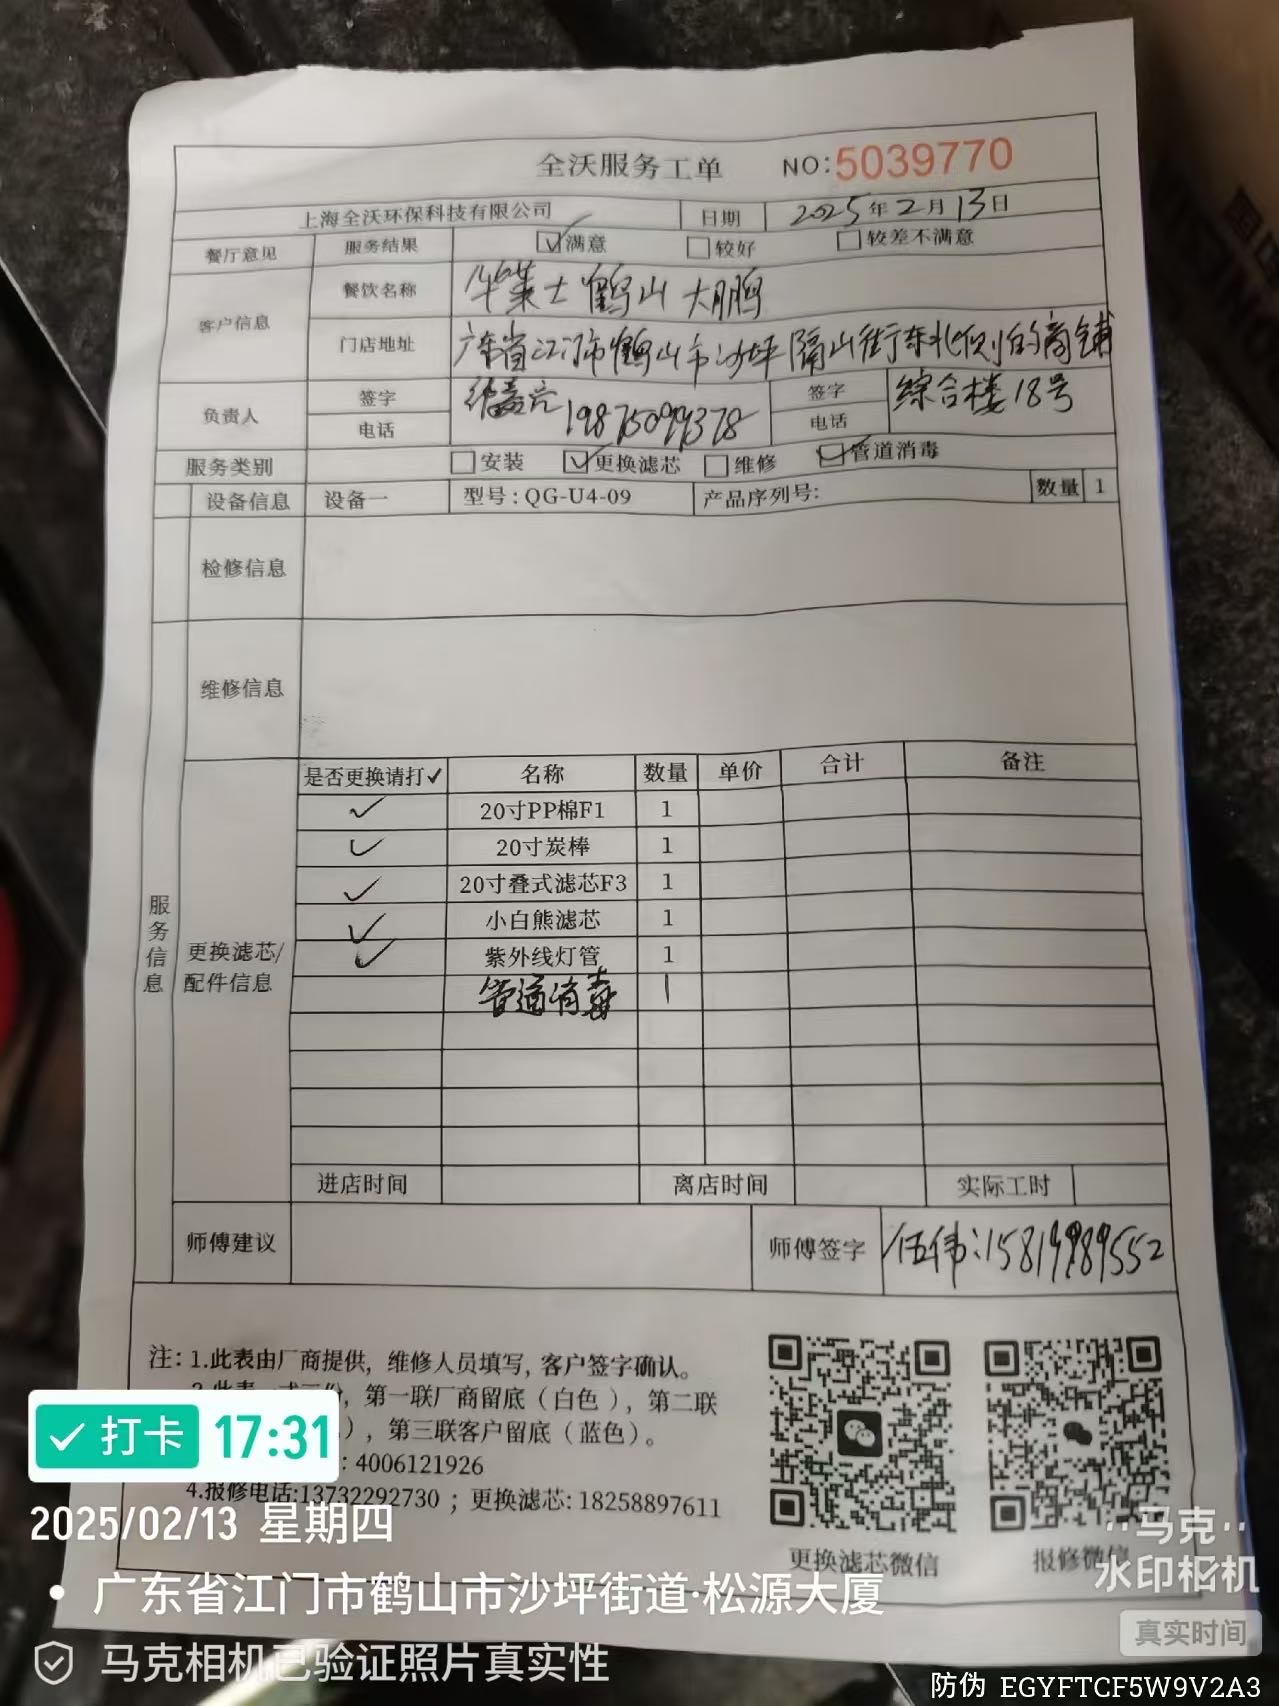 全沃服务工单 NO:5039770
上海全沃环保科技有限公司 日期 2025年2月13日
餐厅意见 服务结果 ☑满意 □较好 □较差不满意
客户信息 餐饮名称 华莱士鹤山大鹏
门店地址 广东省江门市鹤山市沙坪隔山街东北侧的商铺
综合楼18号
负责人 签字 签字
电话 电话
服务类别 □安装 ☑更换滤芯 □维修 ☑管道消毒
设备信息 设备一 型号:QG-U4-09 产品序列号: 数量 1
检修信息
维修信息
服务信息
更换滤芯/
配件信息
是否更换请打✓ 名称 数量 单价 合计 备注
✓ 20寸PP棉F1 1
✓ 20寸炭棒 1
✓ 20寸叠式滤芯F3 1
✓ 小白熊滤芯 1
✓ 紫外线灯管 1
管道消毒 1
进店时间 离店时间 实际工时
师傅建议 师傅签字 伍伟:15819989552
注: 1.此表由厂商提供, 维修人员填写, 客户签字确认。
第一联厂商留底(白色), 第二联
), 第三联客户留底(蓝色)。
: 4006121926
4.报修电话:13732292730 ; 更换滤芯: 18258897611
更换滤芯微信 报修微信
✓ 打卡 17:31
2025/02/13 星期四
• 广东省江门市鹤山市沙坪街道·松源大厦
马克相机已验证照片真实性
马克
水印相机
真实时间
防伪 EGYFTCF5W9V2A3